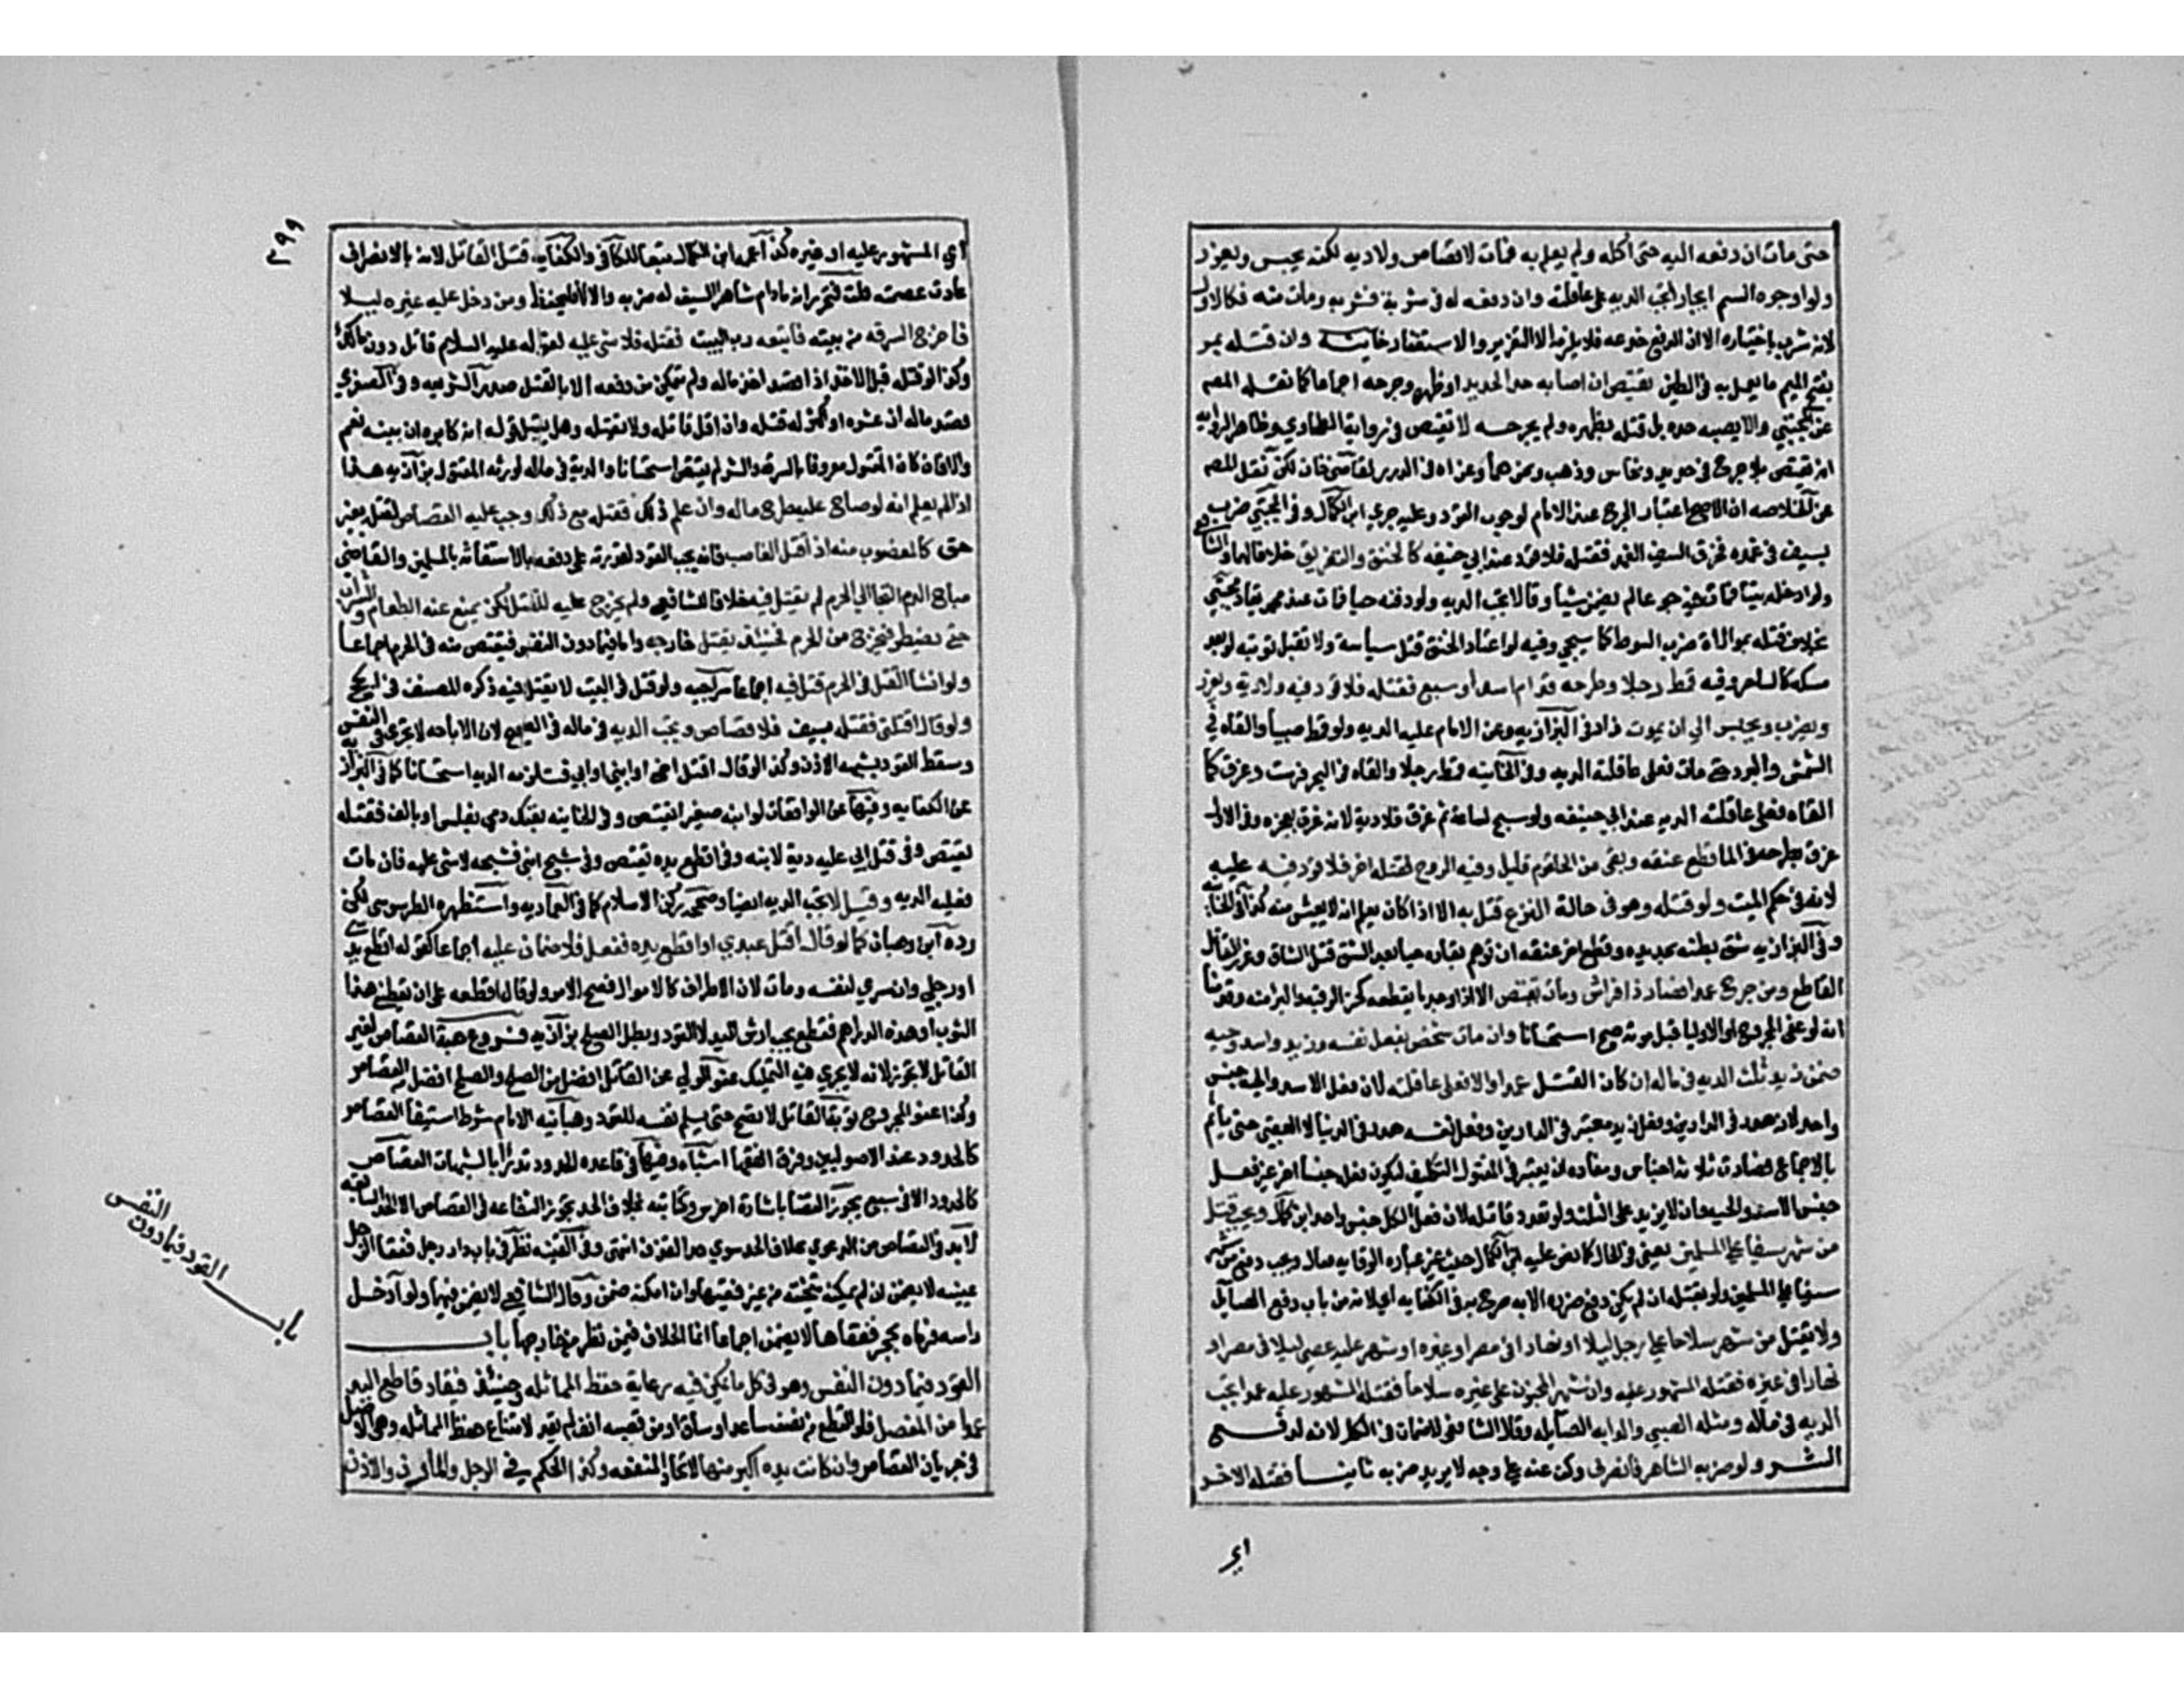 حتى مات ان دفعه اليه حتى أكله ولم يعلم به فمات لا قصاص ولا ديه لكنه يحبس ويعزر
ولو اوجره السم ايجارا تجب الديه على عاقلته وان دفعه له في شربة فشربه ومات منه فكالاول
لانه شرب باختياره الا ان الدفع خدعه فلا يلزم الا التعزير والاستغفار خانيه وان قتله بمر
بفتح الميم ما يعمل به في الطين يقتص ان اصابه حد الحديد او ظهره وجرحه اجماعا كما نقله المصم
عن المجتبي والا يصبه حده بل قتله بظهره ولم يجرحه لا يقتص في رواية الطحاوي وظاهر الروايه
انه يقتص بلا جرح في حديد ونحاس وذهب ونحوهما وعزاه في الدرر لقاضي خان لكن نقل المصم
عن الخلاصه ان الاصح اعتبار الجرح عند الامام لوجوب القود وعليه جري ابن الكمال وفي المجتبي ضرب
بسيف في غمده فخرق السيف الغمد فقتله فلا قود عند ابي حنيفه كالخنق والتغريق خلافا لهما والشافعي
ولو ادخله بيتا فمات فيه جوعا لم يضمن شيأ وقالا تجب الديه ولو دفنه حيا فمات عند محمد يقاد مجتبي
بخلاف قتله بموالاة ضرب السوط كما سيجي وفيه لو اعتاد الخنق قتل سياسة ولا تقبل توبته لو بعد
مسكه كالساحر وفيه قمط رجلا وطرحه قدام اسد او سبع فقتله فلا قود فيه ولا دية ويعزر
ويضرب ويحبس الى ان يموت زاد في البزازيه وعن الامام عليه الديه ولو قمط صبيا والقاه في
الشمس والبرد حتى مات فعلى عاقلته الديه وفي الخانيه قمط رجلا والقاه في البحر فرسب وغرق كما
القاه فعلى عاقلته الديه عند ابي حنيفه ولو سبح ساعة ثم غرق فلا دية لانه غرق بعجزه وفي الاول
غرق بطرحه في الما قطع عنقه وبقى من الحلقوم قليل وفيه الروح فقتله اخر فلا قود فيه عليه
لانه في حكم الميت ولو قتله وهو في حالة النزع قتل به الا اذا كان يعلم انه لا يعيش منه كذا في الخانيه
وفي البزازيه شق بطنه بحديده وقطع اخر عنقه ان توهم بقاءه حيا بعد الشق قتل القاطع
القاطع ومن جرح عمدا فصار ذا فراش ومات يقتص الا اذا وجد ما يقطعه كحز الرقبه والبرء منه وقدمنا
انه لو عفى المجروح او الاوليا قبل موته صح استحسانا وان مات شخص بفعل نفسه وزيد واسد وحيه
ضمن زيد ثلث الديه في ماله ان كان القتل عمدا والا فعلى عاقلته لان فعل الاسد والحيه جنس
واحد لانه هدر في الدارين وفعل زيد معتبر في الدارين وفعل نفسه هدر في الدنيا لا العقبى حتى يأثم
بالاجماع فصارت ثلاثة اجناس ومفاده ان يعتبر في المقتول التكليف ليكون فعله جنسا اخر غير فعل
جنس الاسد والحيه وان لا يزيد على الثلث لو تعدد قاتله لان فعل الكل جنس واحد ابن كمال ويجب قتل
من شهر سيفا على المسلمين يعني في الحال كما نص عليه ابن الكمال حيث غير عبارة الوقايه فقال ويجب دفع من شهر
سيفا على المسلمين ولو بقتله ان لم يمكن دفع ضرره الا به صرح به في الكفايه أي لانه من باب دفع الصايل
ولا يقتل من شهر سلاحا على رجل ليلا او نهارا في مصر او غيره او شهر عليه عصى ليلا في مصر او
نهارا في غيره فقتله المشهور عليه وان شهر المجنون على غيره سلاحا فقتله المشهور عليه عمدا تجب
الديه في ماله ومثله الصبي والدابه الصايله وقال الشافعي لا ضمان في الكل لانه لدفع
الشر ولو ضربه الشاهر فانصرف وكف عنه على وجه لا يريد ضربه ثانيا فقتله الاخر
اي
٣٩٩
أي المشهور عليه او غيره كذا عممه ابن الكمال تبعا للكافي والكفايه قتل القاتل لانه بالانصراف
عادت عصمته قلت فتحرر انه مادام شاهرا السيف له ضربه والا لا فليحفظ ومن دخل عليه غيره ليلا
فاخرج السرقه من بيته فاتبعه رب البيت فقتله فلا شي عليه لقوله عليه السلام قاتل دون مالك
وكذا لو قتله قبل الاخذ اذا قصد اخذ ماله ولم يتمكن من دفعه الا بالقتل صدر الشريعه وفي الصغري
قصد ماله ان عشره او اكثر له قتله وان اقل قاتله ولا يقتله وهل يقبل قوله انه كابره ان بينه نعم
والا فان كان المقتول معروفا بالسرقه والشر لم يقتص استحسانا والدية في ماله لورثه المقتول بزازيه هذا
اذا لم يعلم انه لو صاح عليه طرح ماله وان علم ذلك فقتله مع ذلك وجب عليه القصاص لقتله بغير
حق كالمغصوب منه اذا قتل الغاصب فانه يجب القود لقدرته على دفعه بالاستغاثه بالمسلمين والقاضي
مباح الدم التجا الي الحرم لم يقتل فيه خلافا للشافعي ولم يخرج عليه للقتل لكن يمنع عنه الطعام والشراب
حتى يضطر فيخرج من الحرم فحينئذ يقتل خارجه واما فيما دون النفس فيقتص منه في الحرم اجماعا
ولو انشا القتل في الحرم قتل فيه اجماعا سراجيه ولو قتل في البيت لا يقتل فيه ذكره المصنف في الحج
ولو قال اقتلني فقتله بسيف فلا قصاص وتجب الديه في ماله في الصحيح لان الاباحه لا تجري في النفس
وسقط القود بشبهه الاذن وكذا لو قال اقتل اخي او ابني او ابي فتلزمه الديه استحسانا كما في البزازيه
عن الكفايه وفيها عن الواقعات لو ابنه صغيرا يقتص وفي الخانيه بعتك دمي بفلس او بالف فقتله
يقتص وفي قتل ابي عليه دية لابنه وفي اقطع يده يقتص وفي شج ابني فشجه لا شي عليه فان مات
فعليه الديه وقيل لا تجب الديه ايضا وصححه ركن الاسلام كما في العماديه واستظهره الطرسوسى لكن
رده ابن وهبان كما لو قال اقتل عبدي او اقطع يده ففعل فلا ضمان عليه اجماعا كقوله اقطع يدي
او رجلي وان سري لنفسه ومات لان الاطراف كالاموال فصح الامر ولو قال اقطعه على ان تعطيني هذا
الثوب او هذه الدراهم فقطع يجب ارش اليد لا القود وبطل الصلح بزازيه فروع هبة القصاص لغير
القاتل لا تجوز لانه لا يجري فيه التمليك عفو الولي عن القاتل افضل من الصلح والصلح افضل من القصاص
وكذا عفو المجروح توبة القاتل لا تصح حتى يسلم نفسه للقود وهبانيه الامام شرط استيفا القصاص
كالحدود عند الاصوليين وفرق الفقها اشباه وفيها في قاعده الحدود تدرأ بالشبهات القصاص
كالحدود الا في سبع يجوز القضا باشارة اخرس وكتابته بخلاف الحد تجوز الشفاعه في القصاص لا الحد السابعه
لا بد في القصاص من الدعوي بخلاف الحد سوي حد القذف انتهى وفي القنيه نظر في باب دار رجل ففقا الرجل
عينه لا يضمن ان لم يمكنه تنحيته من غير فقئها وان امكنه ضمن وقال الشافعي لا يضمن فيهما ولو ادخل
راسه فرماه بحجر ففقأها لا يضمن اجماعا انما الخلاف فيمن نظر من خارجها باب
القود فيما دون النفس وهو في كل ما يمكن فيه رعاية حفظ المماثله وحينئذ فيقاد قاطع اليد
عمدا من المفصل فلو القطع من نصف ساعد او ساق او من قصبه انف لم يقد لامتناع حفظ المماثله وهي الاصل
في جريان القصاص وان كانت يده اكبر منها لاتحاد المنفعه وكذا الحكم في الرجل والمارن والاذن
باب القود فيما دون النفس